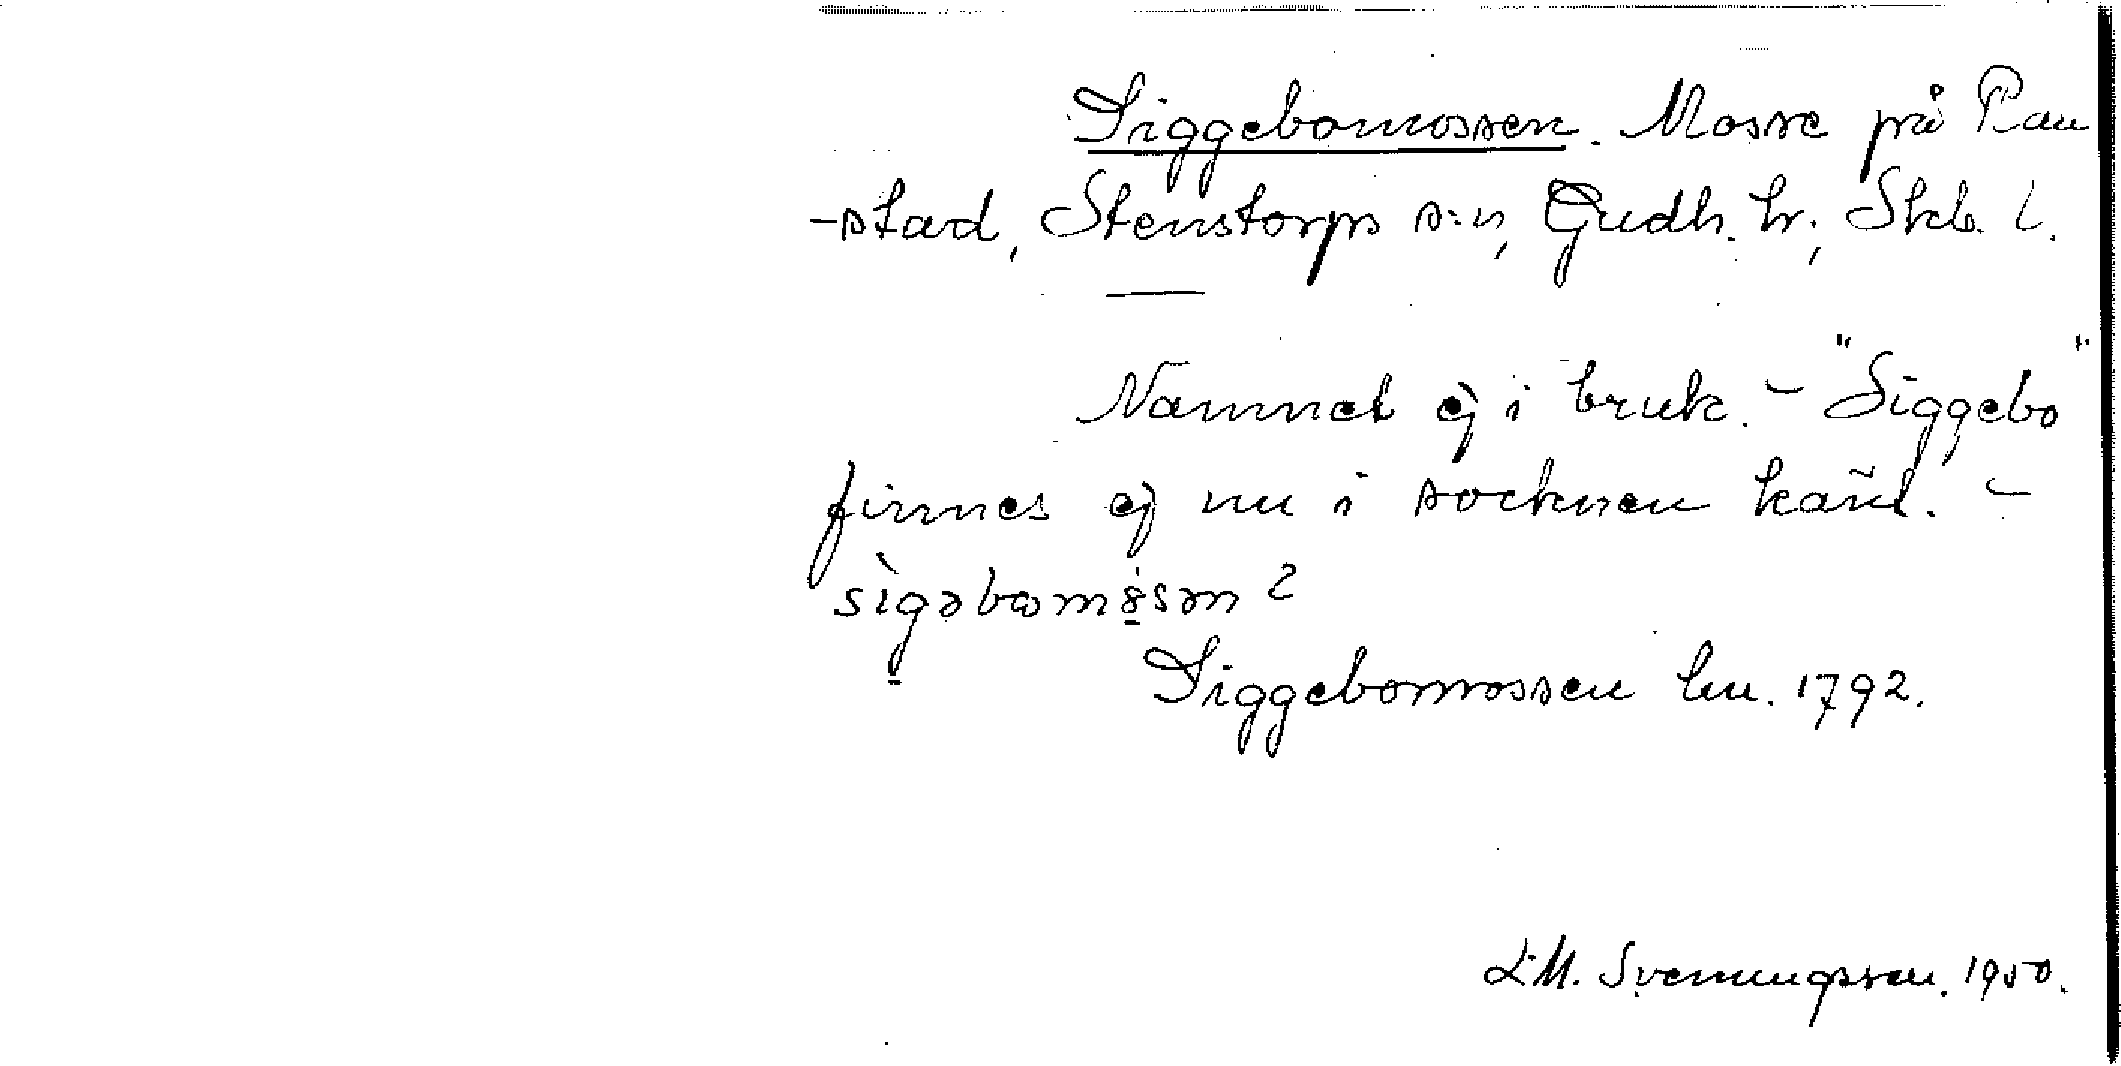 Siggebomossen. Mosse på Ran
-stad, Stenstorps s:n, Gudh. hr; Skb. l.
Namnet ej i bruk. - "Siggebo"
finnes ej nu i socknen känt. -
sìgəbomȯsən?
Siggebomossen lm. 1792.
L.M. Svenungsson. 1950.